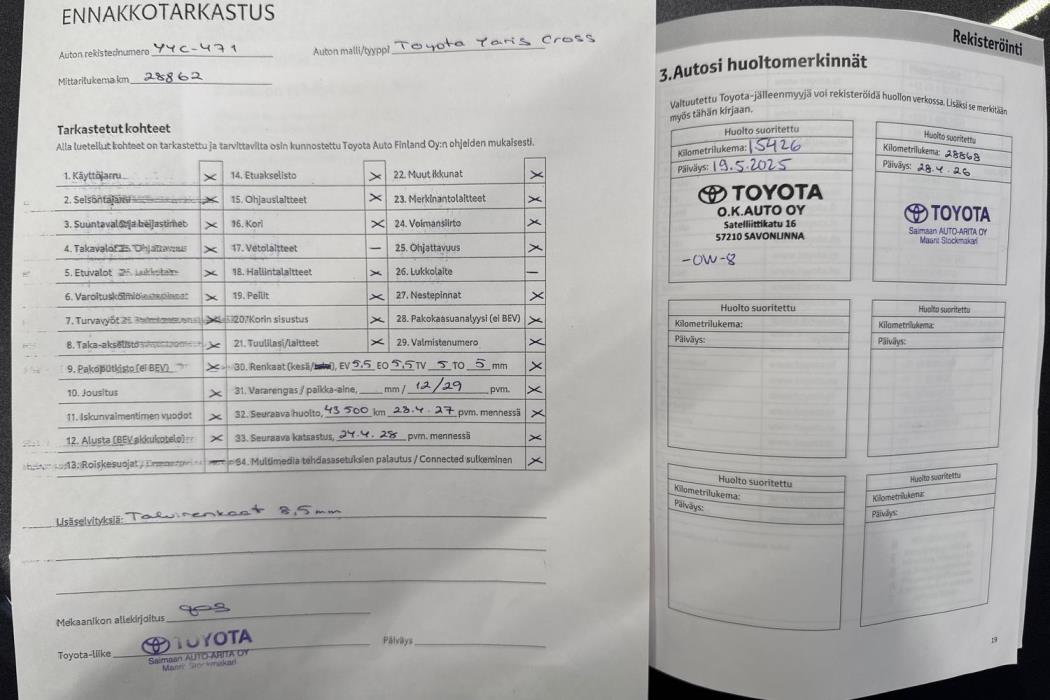 ENNAKKOTARKASTUS
Auton rekisterinumero YYC-471 Auton malli/tyyppi Toyota Yaris Cross
Mittarilukema km 28862
Tarkastetut kohteet
Alla luetellut kohteet on tarkastettu ja tarvittavilta osin kunnostettu Toyota Auto Finland Oy:n ohjeiden mukaisesti.
1. Käyttöjarru X 14. Etuakselisto X 22. Muut ikkunat X
2. Seisontajarru X 15. Ohjauslaitteet X 23. Merkinantolaitteet X
3. Suuntavalot ja heijastimet X 16. Kori X 24. Voimansiirto X
4. Takavalot X 17. Vetolaitteet – 25. Ohjattavuus X
5. Etuvalot X 18. Hallintalaitteet X 26. Lukkolaite –
6. Varoituskolmio X 19. Peilit X 27. Nestepinnat X
7. Turvavyöt X 20. Korin sisustus X 28. Pakokaasuanalyysi (ei BEV) X
8. Taka-akselisto X 21. Tuulilasi/laitteet X 29. Valmistenumero X
9. Pakoputkisto (ei BEV) X 30. Renkaat (kesä/ ), EV 5,5 EO 5,5 TV 5 TO 5 mm X
10. Jousitus X 31. Vararengas / paikka-aine, mm / 12/29 pvm. X
11. Iskunvaimentimen vuodot X 32. Seuraava huolto, 43500 km 28.4.27 pvm. mennessä X
12. Alusta (BEV akkukotelo) X 33. Seuraava katsastus, 24.4.28 pvm. mennessä X
13. Roiskesuojat 34. Multimedia tehdasasetuksien palautus / Connected sulkeminen X
Lisäselvityksiä: Talvirenkaat 8,5mm
Mekaanikon allekirjoitus
Toyota-liike TOYOTA Päiväys
Saimaan AUTO-ARITA OY
Mauri Stockmakari
Rekisteröinti
3.Autosi huoltomerkinnät
Valtuutettu Toyota-jälleenmyyjä voi rekisteröidä huollon verkossa. Lisäksi se merkitään
myös tähän kirjaan.
Huolto suoritettu
Kilometrilukema: 15426
Päiväys: 19.5.2025
TOYOTA
O.K.AUTO OY
Satelliittikatu 16
57210 SAVONLINNA
-OW-8
Huolto suoritettu
Kilometrilukema: 28868
Päiväys: 28.4.26
TOYOTA
Saimaan AUTO-ARITA OY
Mauri Stockmakari
Huolto suoritettu
Kilometrilukema:
Päiväys:
Huolto suoritettu
Kilometrilukema:
Päiväys:
Huolto suoritettu
Kilometrilukema:
Päiväys:
Huolto suoritettu
Kilometrilukema:
Päiväys:
19